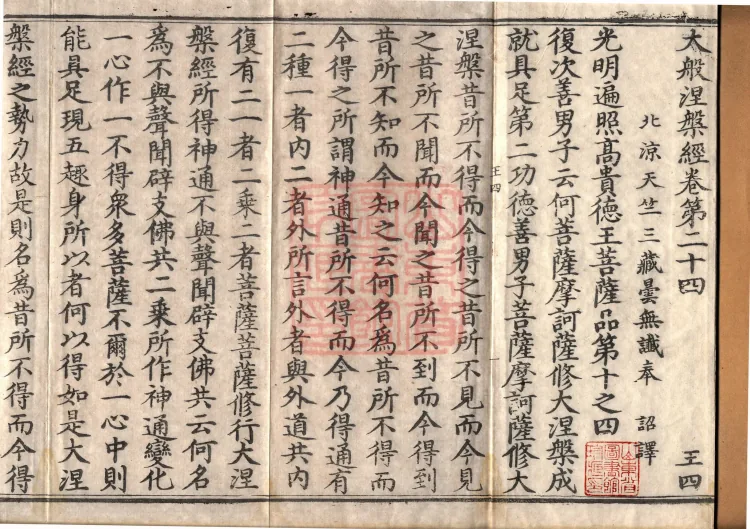 大般涅槃經卷第二十四 王四
北涼天竺三藏曇無讖奉 詔譯
光明遍照高貴德王菩薩品第十之四
復次善男子云何菩薩摩訶薩修大涅槃成
就具足第二功德善男子菩薩摩訶薩修大
王四
涅槃昔所不得而今得之昔所不見而今見
之昔所不聞而今聞之昔所不到而今得到
昔所不知而今知之云何名為昔所不得而
今得之所謂神通昔所不得而今乃得通有
二種一者內二者外所言外者與外道共內
復有二一者二乘二者菩薩菩薩修行大涅
槃經所得神通不與聲聞辟支佛共云何名
為不與聲聞辟支佛共二乘所作神通變化
一心作一不得眾多菩薩不爾於一心中則
能具足現五趣身所以者何以得如是大涅
槃經之勢力故是則名為昔所不得而今得